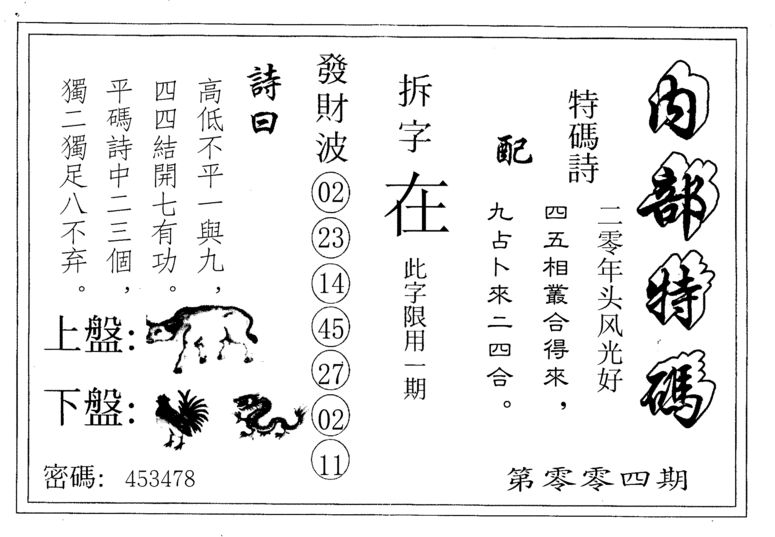 内部特碼
特碼詩
二零年头风光好
四五相叢合得來，
配
九占卜來二四合。
第零零四期
拆字
在
此字限用一期
發財波
02
23
14
45
27
02
11
詩曰
高低不平一與九，
四四結開七有功。
平碼詩中二三個，
獨二獨足八不弃。
上盤:
下盤:
密碼: 453478